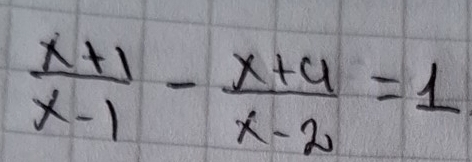 \frac{x+1}{x-1} - \frac{x+4}{x-2} = 1